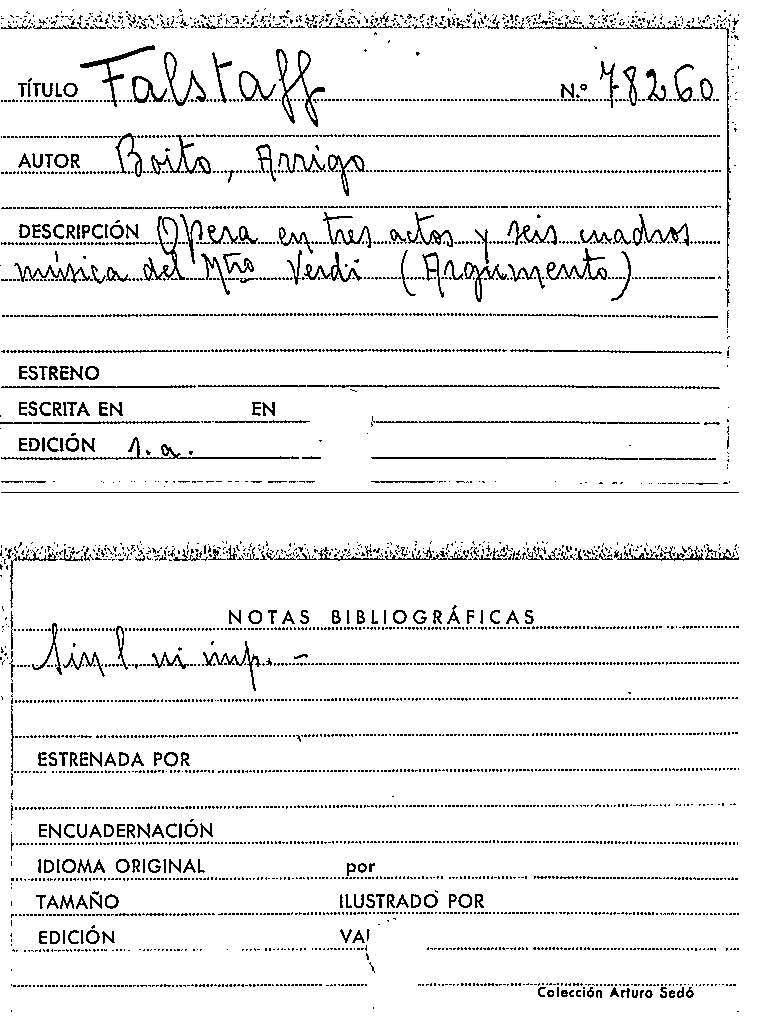 TÍTULO Falstaff N.º 78260
AUTOR Boito, Arrigo
DESCRIPCIÓN Opera en tres actos y seis cuadros
música del Mtro Verdi (Argumento)
ESTRENO
ESCRITA EN EN
EDICIÓN s.a.
NOTAS BIBLIOGRÁFICAS
Sin l. ni imp. -
ESTRENADA POR
ENCUADERNACIÓN
IDIOMA ORIGINAL por
TAMAÑO ILUSTRADO POR
EDICIÓN VAL
Colección Arturo Sedó